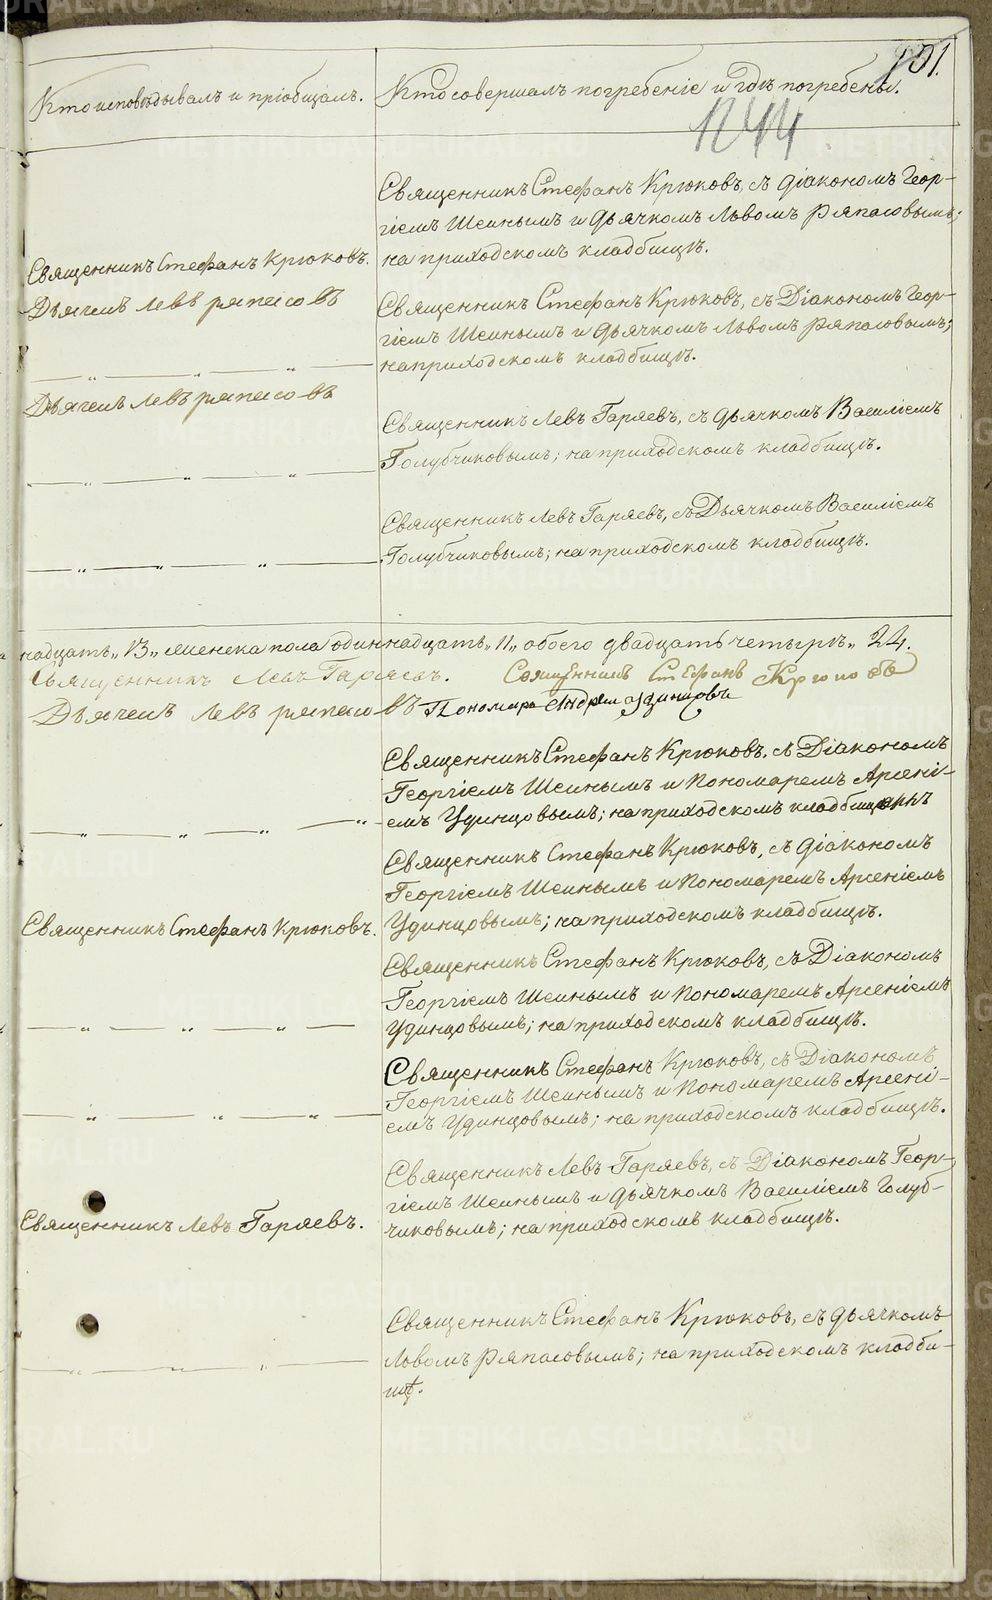 191.
Кто исповѣдывалъ и пріобщалъ.
Кто совершалъ погребеніе и гдѣ погребены.
1244
Священникъ Стефанъ Крюковъ, съ діакономъ Геор-
гіемъ Шеинымъ и дьячкомъ Львомъ Ряпасовымъ;
на приходскомъ кладбищѣ.
Священникъ Стефанъ Крюковъ.
Дьячекъ Левъ Ряпасовъ
Священникъ Стефанъ Крюковъ, съ Діакономъ Геор-
гіемъ Шеинымъ и дьячкомъ Львомъ Ряпасовымъ;
на приходскомъ кладбищѣ.
— „ — „ — „ —
Дьячекъ Левъ Ряпасовъ
Священникъ Левъ Гаряевъ, съ дьячкомъ Василіемъ
Голубчиковымъ; на приходскомъ кладбищѣ.
— „ — „ — „ —
Священникъ Левъ Гаряевъ, съ Дьячкомъ Василіемъ
Голубчиковымъ; на приходскомъ кладбищѣ.
— „ — „ — „ —
надцать „13„ женска пола одиннадцать „11„ обоего двадцать четыре „24.
Священникъ Левъ Гаряевъ. Священникъ Стефанъ Крюковъ
Дьячекъ Левъ Ряпасовъ Пономарь Удинцовъ
Священникъ Стефанъ Крюковъ, съ Діакономъ
Георгіемъ Шеинымъ и Пономаремъ Арсені-
емъ Удинцовымъ; на приходскомъ
— „ — „ — „ — „
Священникъ Стефанъ Крюковъ, съ діакономъ
Георгіемъ Шеинымъ и Пономаремъ Арсеніемъ
Удинцовымъ; на приходскомъ кладбищѣ.
Священникъ Стефанъ Крюковъ.
Священникъ Стефанъ Крюковъ, съ Діакономъ
Георгіемъ Шеинымъ и Пономаремъ Арсеніемъ
Удинцовымъ; на приходскомъ кладбищѣ.
— „ — „ — „ —
Священникъ Стефанъ Крюковъ, съ Діакономъ
Георгіемъ Шеинымъ и Пономаремъ Арсені-
емъ Удинцовымъ; на приходскомъ кладбищѣ.
— „ — „ — „ —
Священникъ Левъ Гаряевъ, съ Діакономъ Геор-
гіемъ Шеинымъ и дьячкомъ Василіемъ Голуб-
чиковымъ; на приходскомъ кладбищѣ.
Священникъ Левъ Гаряевъ.
Священникъ Стефанъ Крюковъ, съ дьячкомъ
Львомъ Ряпасовымъ; на приходскомъ кладби-
щѣ.
— „ — „ — „ —
METRIKI.GASO-URAL.RU